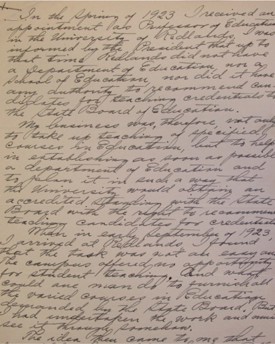 In the Spring of 1923 I received an
appointment as Professor of Education
in the University of Redlands. I was
informed by the President that up to
that time Redlands did not have
a Department of Education, nor a
School of Education, nor did it have
any authority to recommend can-
didates for teaching credentials to
the State Board of Education.
My business was, therefore, not only
to take up teaching of specified
courses in Education, but to help
in establishing as soon as possible
a department of Education and
to plan it in such a way that
the University would obtain an
accredited standing with the State
Board with the right to recommend
teaching candidates for credentials.
When in early September of 1923
I arrived at Redlands, I found
that the task was not an easy one
The campus offered no opportunity
for student teaching. And what
could one man do to furnish all
the varied courses in Education
demanded by the State Board. But
I had undertaken the work and must
see it through somehow.
The idea then came to me that